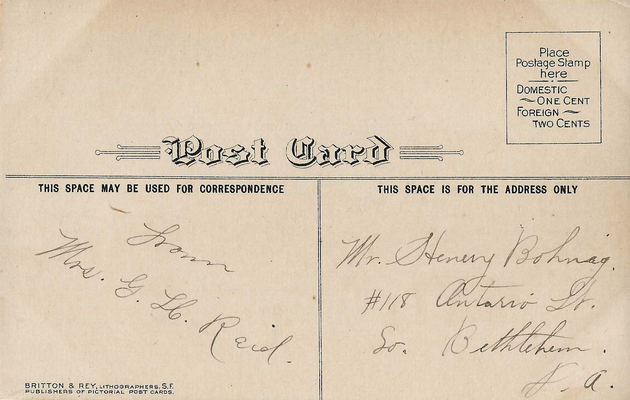 Place
Postage Stamp
here
DOMESTIC
ONE CENT
FOREIGN
TWO CENTS
Post Card
THIS SPACE MAY BE USED FOR CORRESPONDENCE
THIS SPACE IS FOR THE ADDRESS ONLY
From
Mrs. G. H. Reid.
Mr. Henery Bohnig.
#118 Antario St.
So. Bethlehem.
P.A.
BRITTON & REY, LITHOGRAPHERS, S.F.
PUBLISHERS OF PICTORIAL POST CARDS.